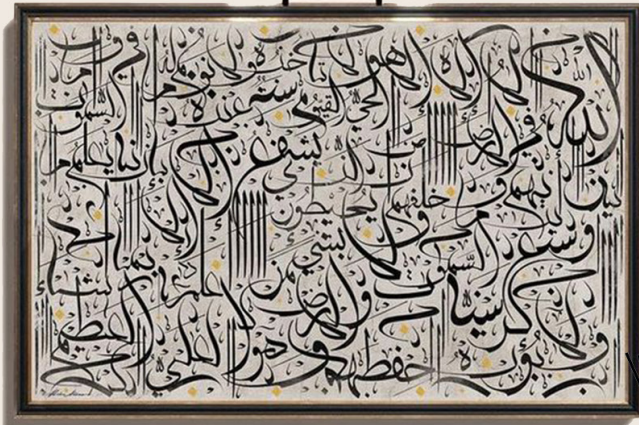 الله لا إله إلا هو الحي القيوم لا تأخذه سنة ولا نوم له ما في السموات
وما في الأرض من ذا الذي يشفع عنده إلا بإذنه يعلم ما
بين أيديهم وما خلفهم ولا يحيطون بشيء من علمه إلا بما شاء
وسع كرسيه السموات والأرض ولا يئوده حفظهما وهو العلي العظيم